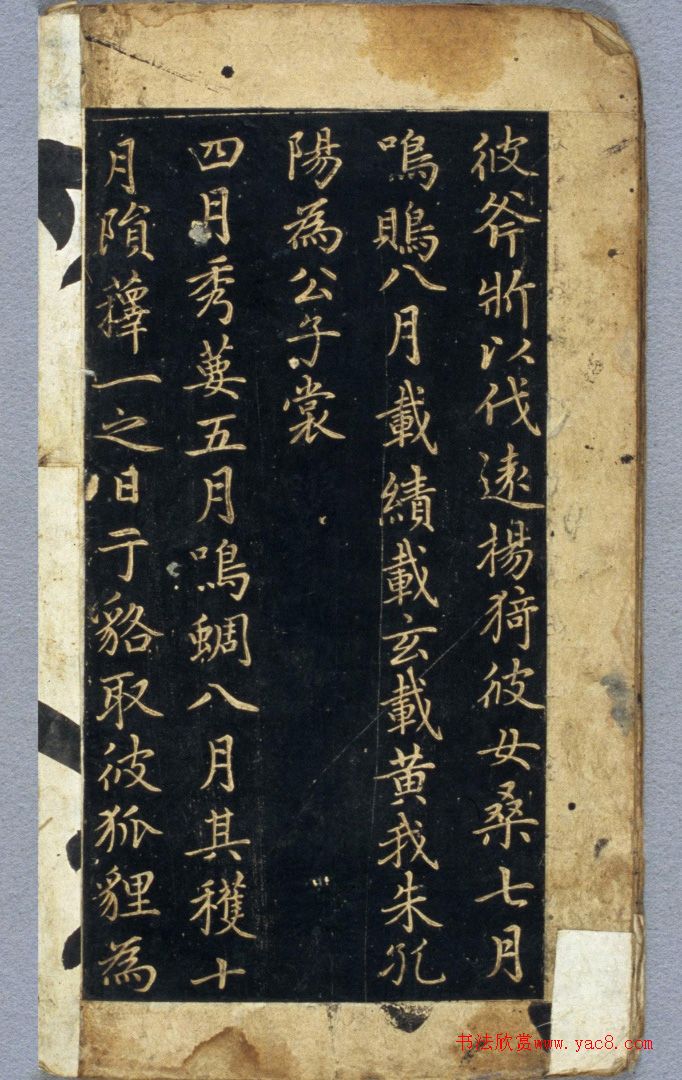 彼斧斨以伐遠楊猗彼女桑七月
鳴鵙八月載績載玄載黃我朱孔
陽為公子裳
四月秀葽五月鳴蜩八月其穫十
月隕蘀一之日于貉取彼狐貍為
书法欣赏www.yac8.com